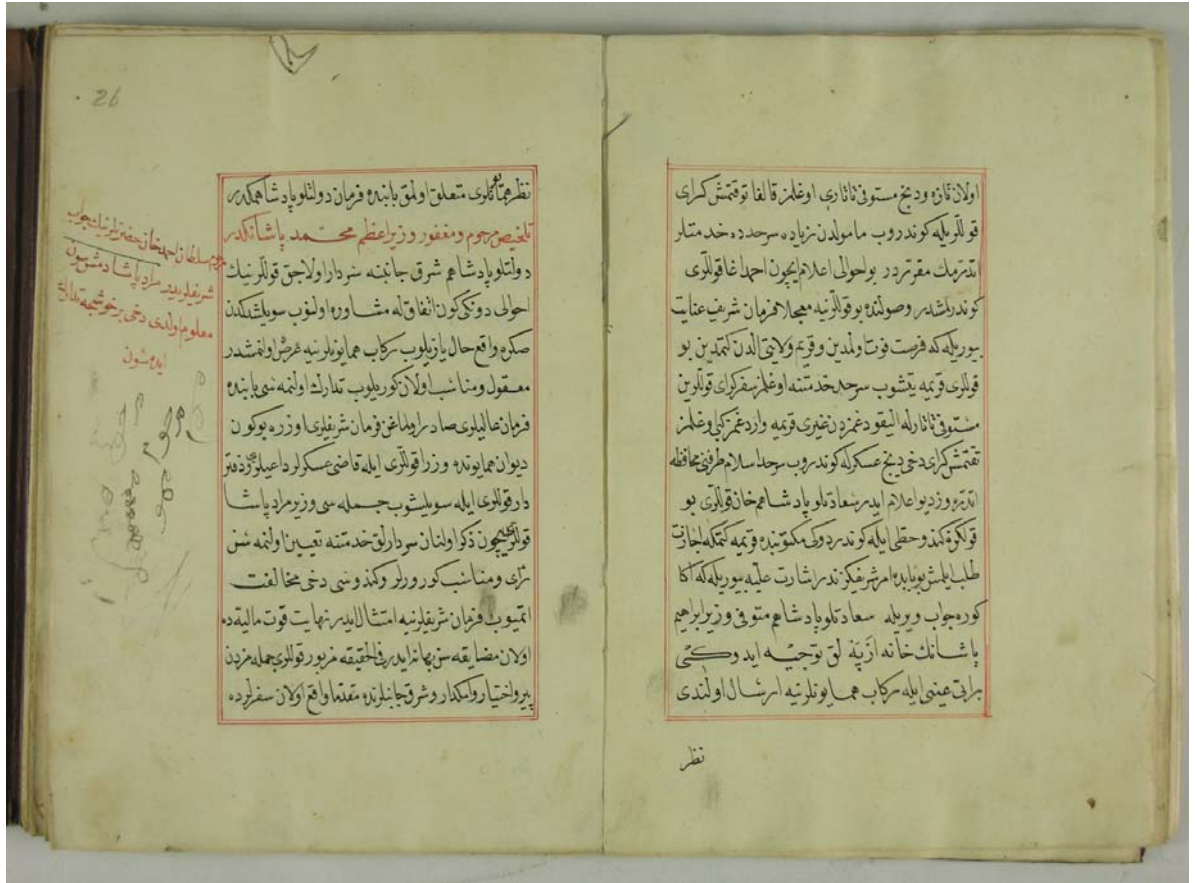 اولان تازه و دینج مستوفی تاتاری اوغلمز قالغا توقتمش کرای
قوللریله کوندروب مامولدن زیاده سرحدده خدمتلر
اتدرمك مقرردر بو احوالی اعلام ایچون احمد اغا قوللری
کوندرلمشدر وصولنده بو قوللرینه معجلا فرمان شریف عنایت
بیوریله که فرصت فوت اولمدین و قریم ولایتی الدن کتمدین بو
قوللری قریمه یتیشوب سرحد خدمتنه اوغلمز سفر کرای قوللرین
مستوفی تاتارله الیقود غمزدن غیری قریمه واردغمز کبی اوغلمز
تقتمش کرای دخی دینج عسکرله کوندروب سرحد اسلام طرفنی محافظه
اتدره وز دیو اعلام ایدر سعادتلو پادشاهم خان قوللری بو
قوللرکه کندو خطی ایله کوندردوکی مکتوبنده قریمه کتمکه اجازت
طلب ایلمش بو بابده امر شریفکز ندر اشارت علیه بیوریله که اکا
کوره جواب ویریله سعادتلو پادشاهم متوفی وزیر ابراهیم
پاشانك خانه ارپه لق توجیه ایدوکی
براتی عینی ایله رکاب همایونلرینه ارسال اولندی
نظر
26
نظر همایونلری متعلق اولمق بابنده فرمان دولتلو پادشاهمکدر
تلخیص مرحوم و مغفور وزیر اعظم محمد پاشانکدر
دولتلو پادشاهم شرق جانبنه سردار اولاجق قوللرینك
احوالی دونکی کون اتفاق له مشاوره اولنوب سویلشدکدن
صکره واقع حال یازیلوب رکاب همایونلرینه عرض اولنمشدر
معقول و مناسب اولان کوریلوب تدارك اولنمه سی بابنده
فرمان عالیلری صادر اولماغن فرمان شریفلری اوزره بوکون
دیوان همایونده وزرا قوللری ایله قاضی عسکرلر داعیلری و دفتر
دار قوللری ایله سویلیشوب جمله سی وزیر مراد پاشا
قوللری ایچون ذکر اولنان سردارلق خدمتنه تعیین اولنمه سن
رای و مناسب کوررلر و کندوسی دخی مخالفت
اتمیوب فرمان شریفلرینه امتثال ایدر نهایت قوت مالیه ده
اولان مضایقه سن بهانه ایدر فی الحقیقه مزبور قوللری جمله مزدن
پیر و اختیار و امکدار و شرق جانبلرنده مقدما واقع اولان سفرلرده
مرحوم سلطان احمد خان حضرتلرینك جواب
شریفلریدر مراد پاشا دمشق سون
معلوم اولدی دخی بر خوشجه تدارك
ایده سون